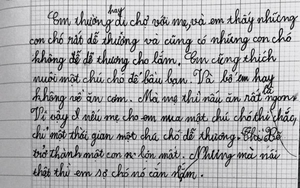 hay
Em thường đi chợ với mẹ, và em thấy những
con chó rất dễ thương và cũng có những con chó
không dễ dễ thương cho lắm. Em cũng thích
nuôi một chú chó để bầu bạn. Và bố em hay
không về ăn cơm. Mà mẹ thì nấu ăn rất ngon
Vì vậy nếu mẹ cho em mua một chú chó thì chắc
chỉ một thời gian một chú chó dễ thương
trở thành một con lớn mất. Nhưng mà nói
thật thì em sợ chó nó cắn lắm.